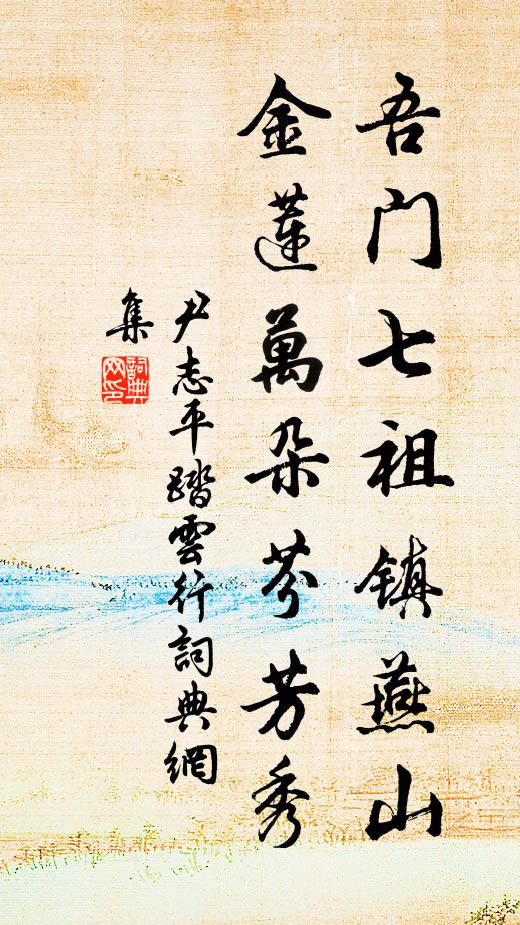 吾门七祖镇燕山
金莲萬朵芬芳秀
尹志平踏雲行詞典網
集
詞典網印